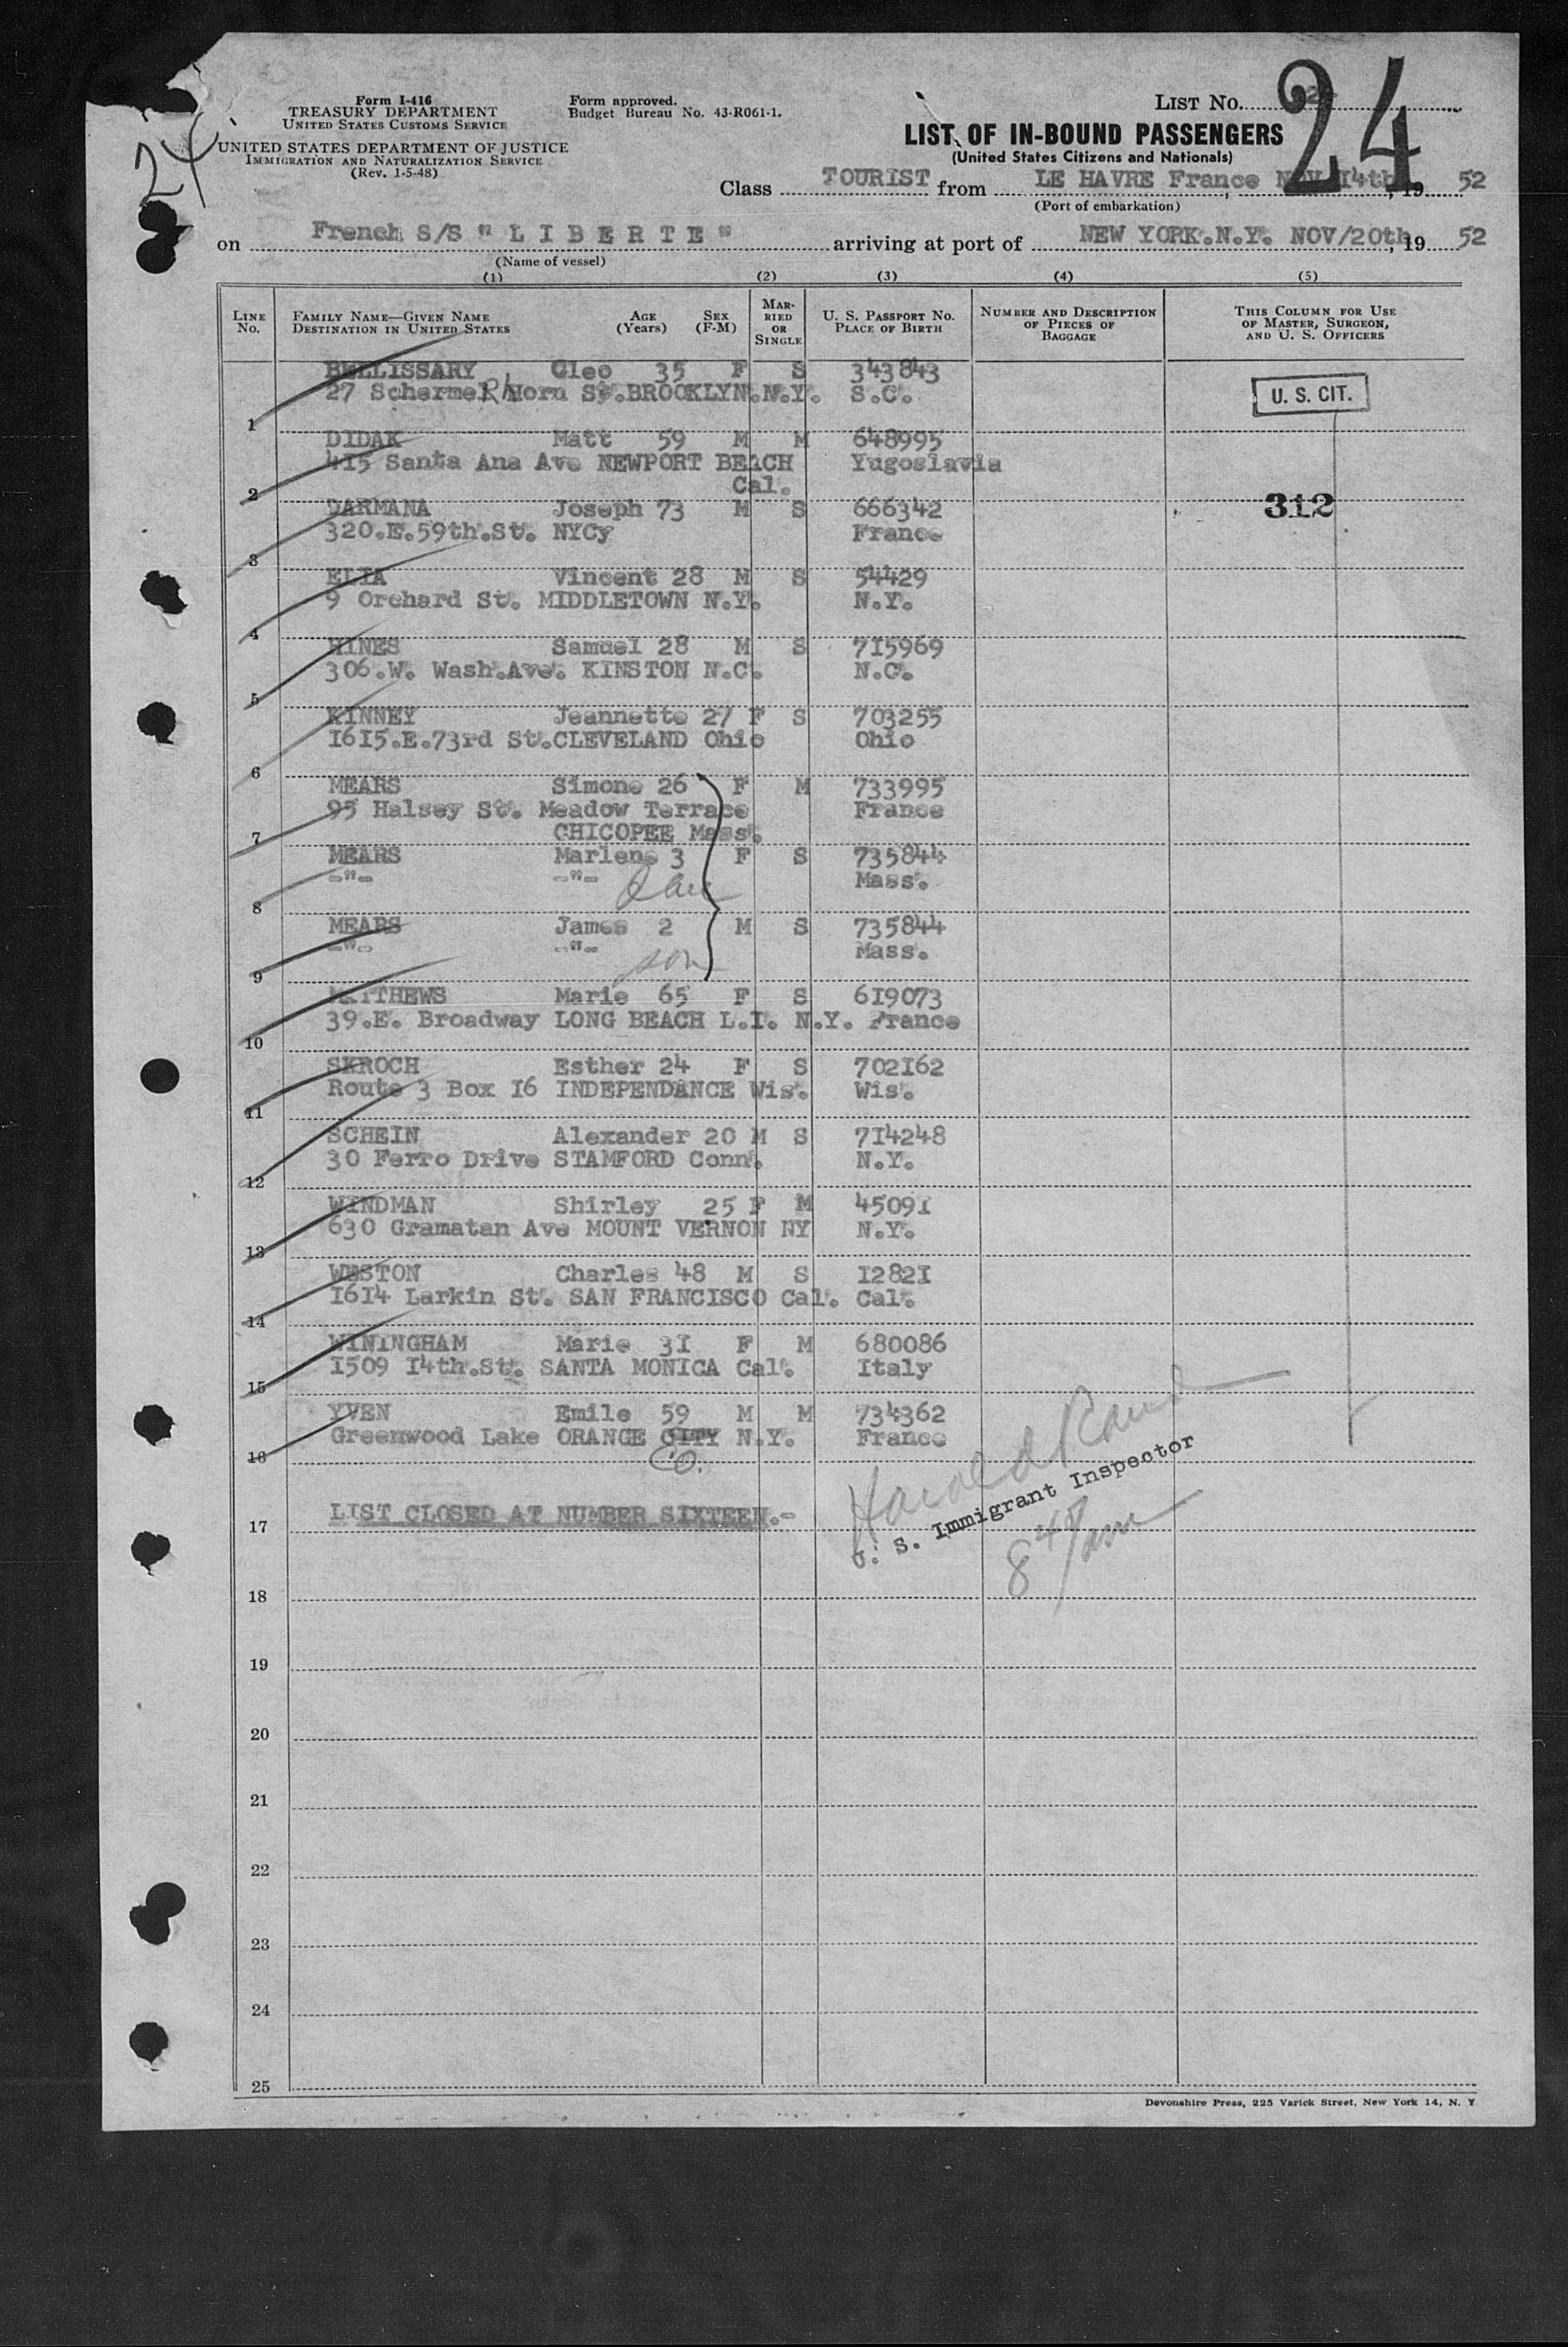 24
Form I-416
TREASURY DEPARTMENT
UNITED STATES CUSTOMS SERVICE
UNITED STATES DEPARTMENT OF JUSTICE
IMMIGRATION AND NATURALIZATION SERVICE
(Rev. 1-5-48)
Form approved.
Budget Bureau No. 43-R061-1.
LIST No. 24
LIST OF IN-BOUND PASSENGERS
(United States Citizens and Nationals)
Class TOURIST from LE HAVRE France NOV 14th, 19 52
(Port of embarkation)
on French S/S " L I B E R T E " arriving at port of NEW YORK.N.Y. NOV/20th, 19 52
(Name of vessel)
(1) (2) (3) (4) (5)
LINE No. FAMILY NAME—GIVEN NAME DESTINATION IN UNITED STATES AGE (Years) SEX (F-M) MARRIED OR SINGLE U. S. PASSPORT No. PLACE OF BIRTH NUMBER AND DESCRIPTION OF PIECES OF BAGGAGE THIS COLUMN FOR USE OF MASTER, SURGEON, AND U. S. OFFICERS
BELLISSARY Cleo 35 F S 343843
27 SchermeR Horn St.BROOKLYN.N.Y. S.C. U. S. CIT.
1
DIDAK Matt 59 M M 648995
415 Santa Ana Ave NEWPORT BEACH Yugoslavia
Cal.
2
DARMANA Joseph 73 M S 666342 312
320.E.59th.St. NYCy France
3
ELIA Vincent 28 M S 54429
9 Orchard St. MIDDLETOWN N.Y. N.Y.
4
HINES Samuel 28 M S 715969
306.W. Wash.Ave. KINSTON N.C. N.C.
5
KINNEY Jeannette 27 F S 703255
1615.E.73rd St.CLEVELAND Ohio Ohio
6
MEARS Simone 26 F M 733995
95 Halsey St. Meadow Terrace France
CHICOPEE Mass.
7
MEARS Marlene 3 F S 735844
-"- -"- Mass.
8
MEARS James 2 M S 735844
-"- -"- son Mass.
9
MATTHEWS Marie 65 F S 619073
39.E. Broadway LONG BEACH L.I. N.Y. France
10
SKROCH Esther 24 F S 702162
Route 3 Box 16 INDEPENDANCE Wis. Wis.
11
SCHEIN Alexander 20 M S 714248
30 Ferro Drive STAMFORD Conn. N.Y.
12
WINDMAN Shirley 25 F M 45091
630 Gramatan Ave MOUNT VERNON NY N.Y.
13
WESTON Charles 48 M S 12821
1614 Larkin St. SAN FRANCISCO Cal. Cal.
14
WININGHAM Marie 31 F M 680086
1509 14th.St. SANTA MONICA Cal. Italy
15
YVEN Emile 59 M M 734362
Greenwood Lake ORANGE CITY N.Y. France
Co.
16
LIST CLOSED AT NUMBER SIXTEEN.-
17
Harold
U. S. Immigrant Inspector
8 am
18
19
20
21
22
23
24
25
Devonshire Press, 225 Varick Street, New York 14, N. Y